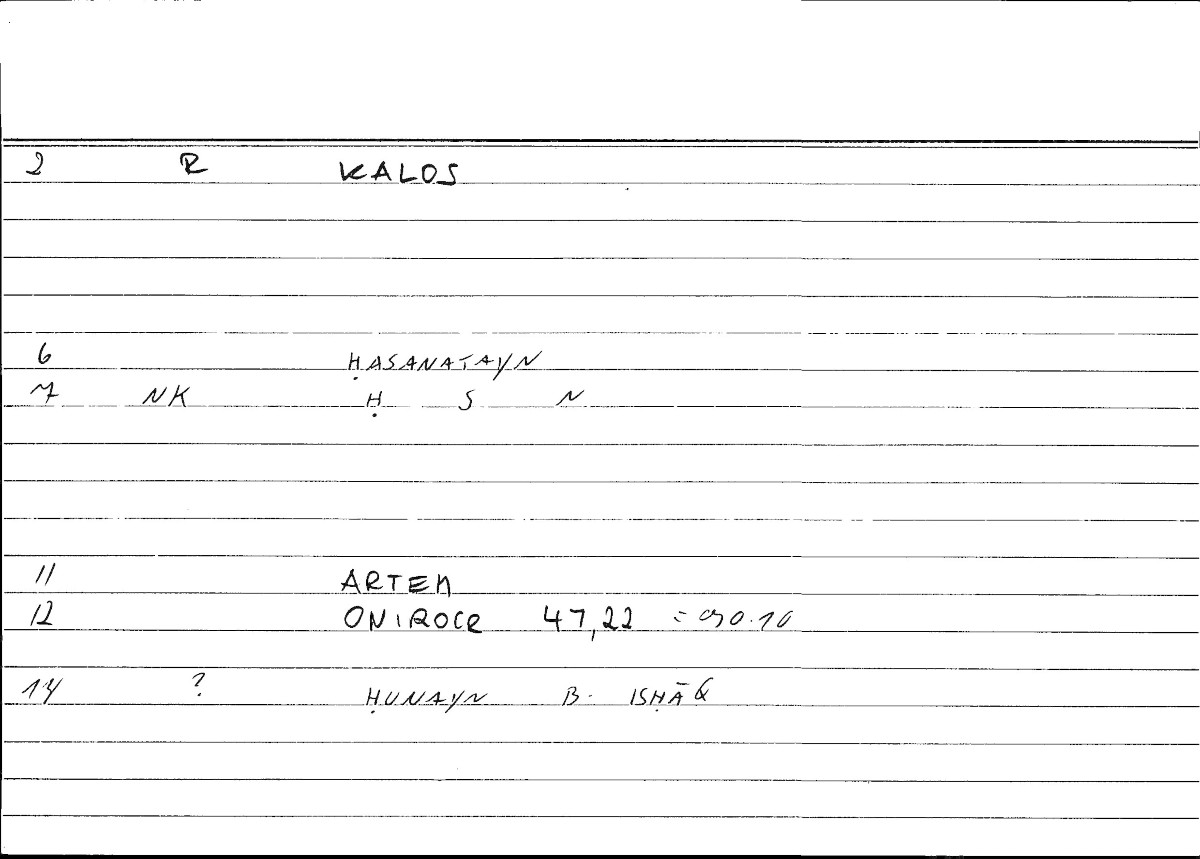 2 R KALOS
6 ḤASANATAYN
7 NK Ḥ S N
11 ARTEM
12 ONIROCR 47,22 = 90.10
14 ? ḤUNAYN B. ISḤĀQ